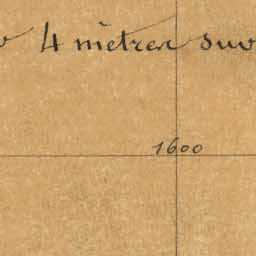 4 mètres sur
1600